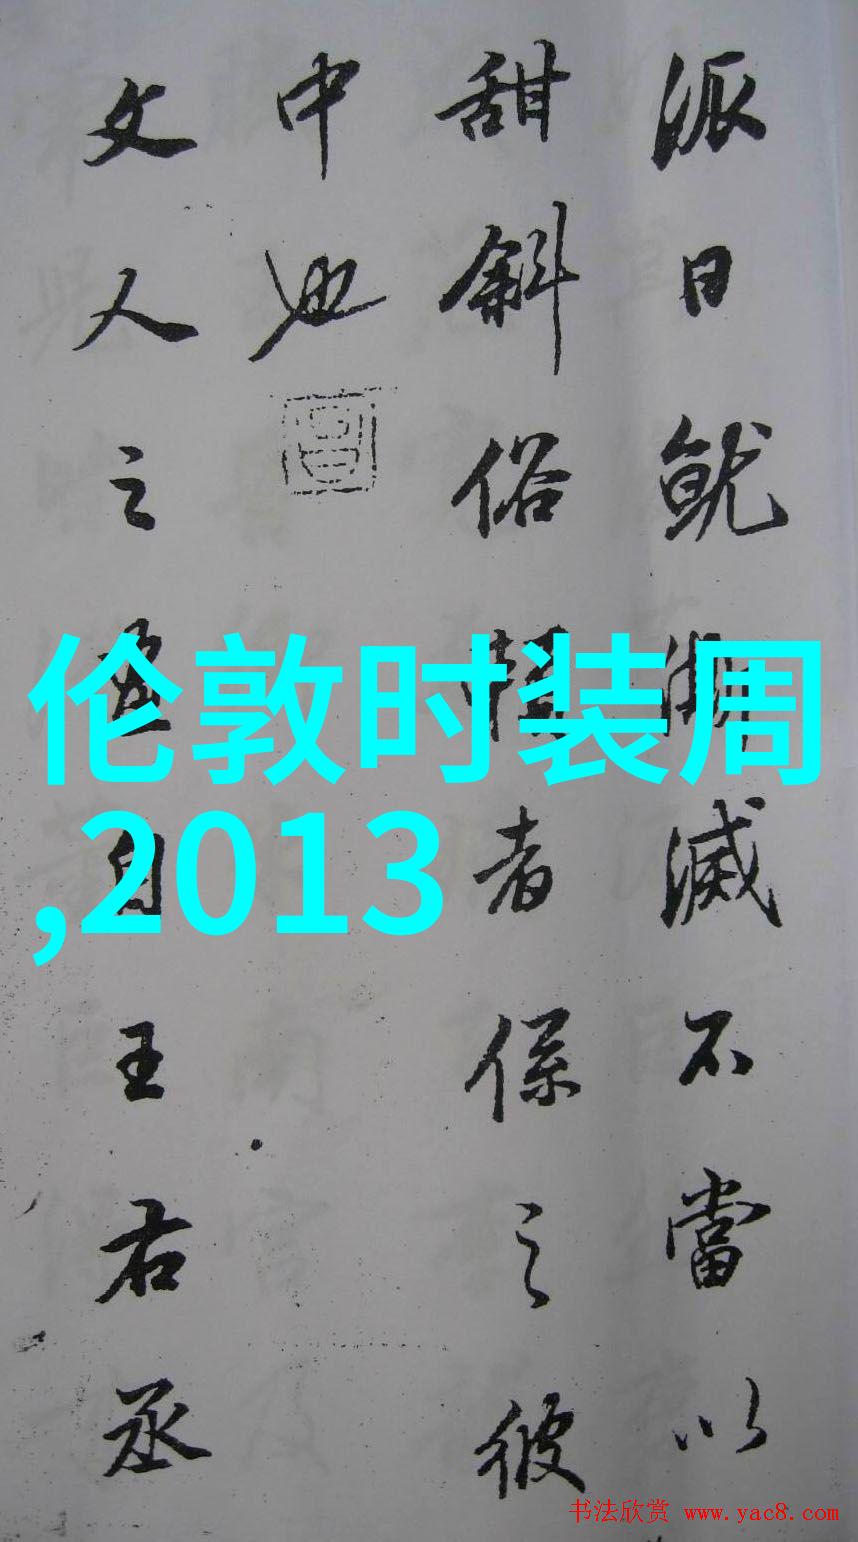 派日就澌滅不當以
甜斜俗賴者係之彼
中也
文人之畫自王右丞
伦敦时装周
,2013
书法欣赏 www.yac8.com